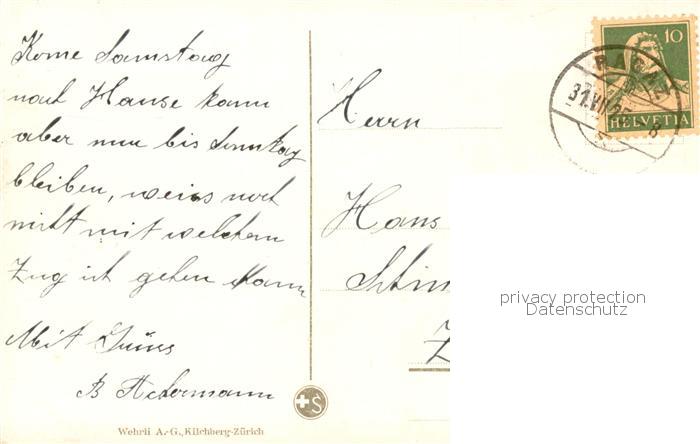 Kome Samstag
nach Hause kann
aber nur bis Sonntag
bleiben, weiss noch
nicht mit welchem
Zug ich gehen kann
Mit Gruss
B Ackermann
Wehrli A.-G., Kilchberg-Zürich
S
Herrn
Hans
Z
10
HELVETIA
RAGAZ
31.VII.
privacy protection
Datenschutz